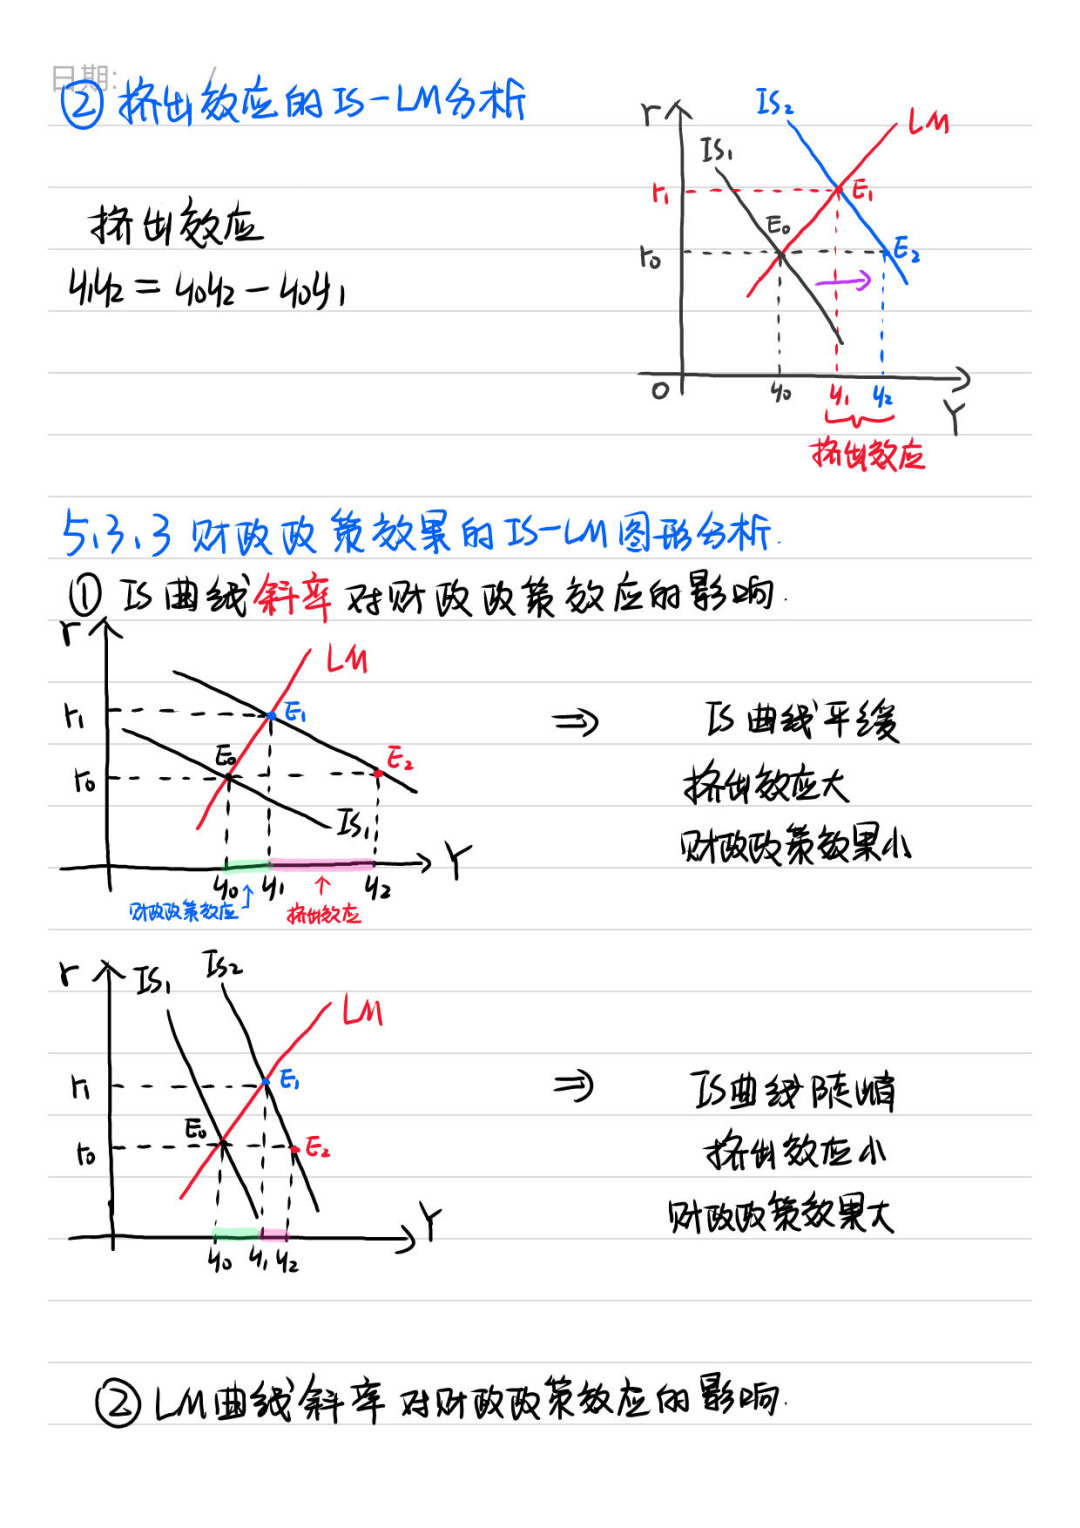 日期: /
②挤出效应的IS-LM分析
挤出效应
y₁y₂ = y₀y₂ - y₀y₁
r
IS₂
LM
IS₁
r₁
E₁
E₀
r₀
E₂
O
y₀
y₁
y₂
Y
挤出效应
5.3.3 财政政策效果的IS-LM图形分析.
① IS曲线斜率对财政政策效应的影响.
r
LM
r₁
E₁
E₀
E₂
r₀
IS₁
Y
y₀ y₁ y₂
财政政策效应
挤出效应
⇒ IS曲线平缓
挤出效应大
财政政策效果小
r
IS₁
IS₂
LM
r₁
E₁
E₀
r₀
E₂
Y
y₀ y₁ y₂
⇒ IS曲线陡峭
挤出效应小
财政政策效果大
② LM曲线斜率对财政政策效应的影响.